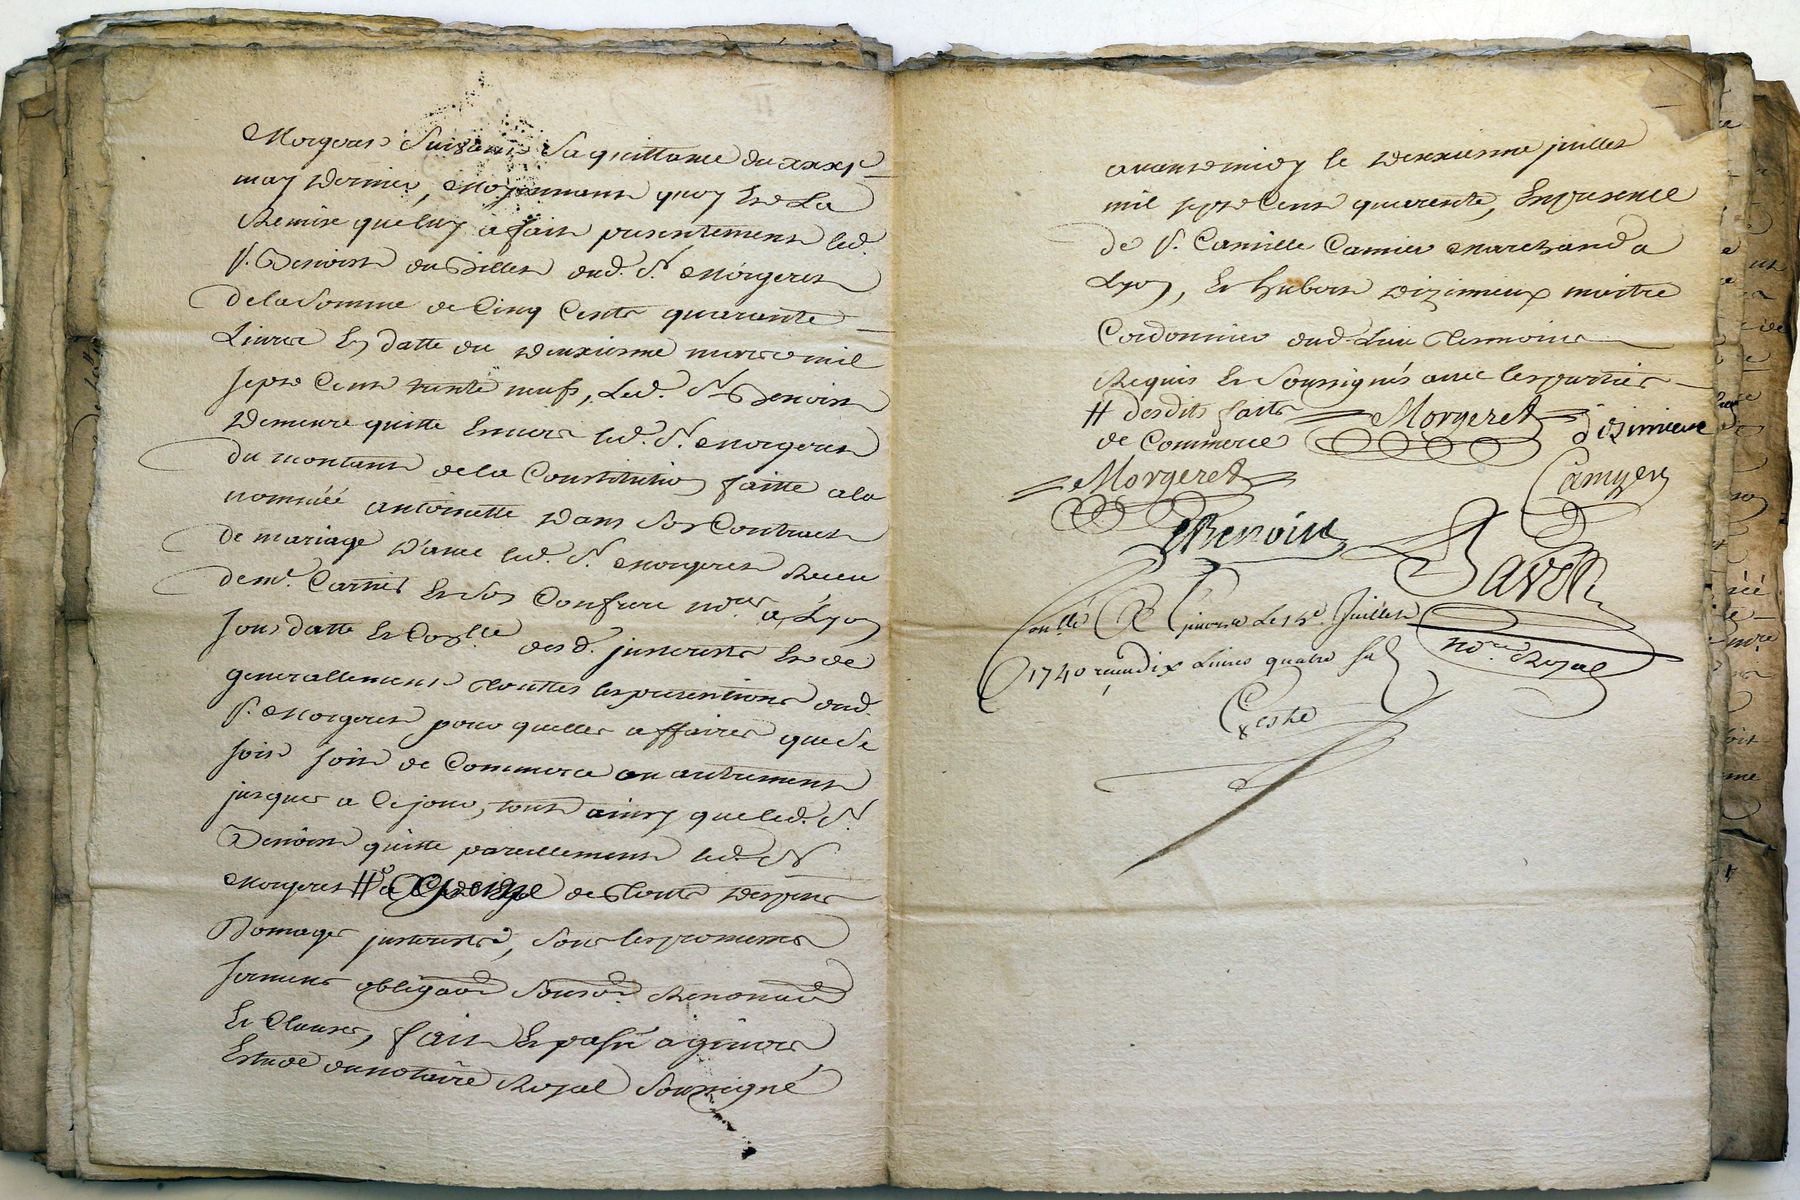 Morgeret Suivant Sa quittance du xxxi.e
may dernier, moyennant quoy Et La
Remise que luy a fait presentement led.
s. Benoist du Billet dud. S.r Morgeret
de la Somme de Cinq Cents quarante
Livres En datte du deuxiesme mars mil
sept Cent trente neuf, Led. S.r Benoist
Demeure quitte Envers led. S.r Morgeret
Du montant de la Constitution faitte a la
nommée antoinette Dans Son Contract
de mariage D'avec led. S.r Morgeret Receu
de m.e Carnier Et Son Confrere no.res a Lyon
sous datte Et Con.lle des d. jnterests Et de
generallement touttes les pretentions dud.
s. Morgeret pour quelles affaires que Se
soit soit de Commerce ou autrement
jusques a Ce jour, tout ainsy que led. S.r
Benoist quitte pareillement led. S.r
Morgeret # a peine de touts despens
Domages jnterests, Sous les promesses
serments obligaons Soumons Renonciaons
Et Clauses, fait Et passé a givors
Estude du notaire Royal Soussigné
avant midy le deuxiesme juillet
mil sept Cent quarente, En presence
de s. Camille Camier marchand a
Lyon, Et hubert dizimieux maitre
Cordonnier dud. Lieu tesmoins
Requis Et Soussignés avec les parties
# desdits faits
de Commerce
Morgeret
dizimieux
Morgeret
Camyer
Benoist
Bavet
no.re Royal
Con.llé a givors Le 15.e Juillet
1740 receu dix Livres quatre s.
Ceste